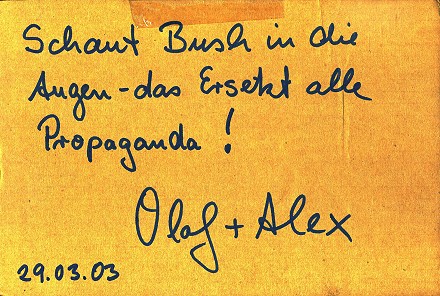 Schaut Bush in die
Augen - das Ersetzt alle
Propaganda!
Olaf + Alex
29.03.03